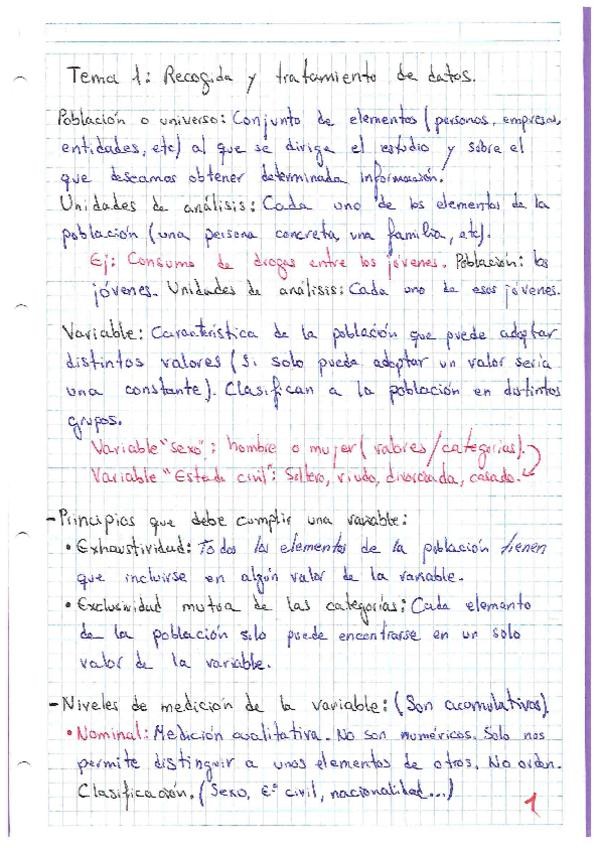 Tema 1: Recogida y tratamiento de datos.
Población o universo: Conjunto de elementos (personas, empresas,
entidades, etc) al que se diriga el estudio y sobre el
que deseamos obtener determinada información.
Unidades de análisis: Cada uno de los elementos de la
población (una persona concreta, una familia, etc).
Ej: Consumo de drogas entre los jóvenes. Población: los
jóvenes. Unidades de análisis: Cada uno de esos jóvenes.
Variable: Característica de la población que puede adoptar
distintos valores (si solo pueda adoptar un valor sería
una constante). Clasifican a la población en distintos
grupos.
Variable "sexo": hombre o mujer (valores/categorías).
Variable "Estado civil": Soltero, viudo, divorciada, casado.
- Principios que debe cumplir una variable:
• Exhaustividad: Todos los elementos de la población tienen
que incluirse en algún valor de la variable.
• Exclusividad mutua de las categorías: Cada elemento
de la población solo puede encontrarse en un solo
valor de la variable.
- Niveles de medición de la variable: (Son acumulativos)
• Nominal: Medición cualitativa. No son numéricos. Solo nos
permite distinguir a unos elementos de otros. No orden.
Clasificación. (Sexo, Eº civil, nacionalidad...)
1